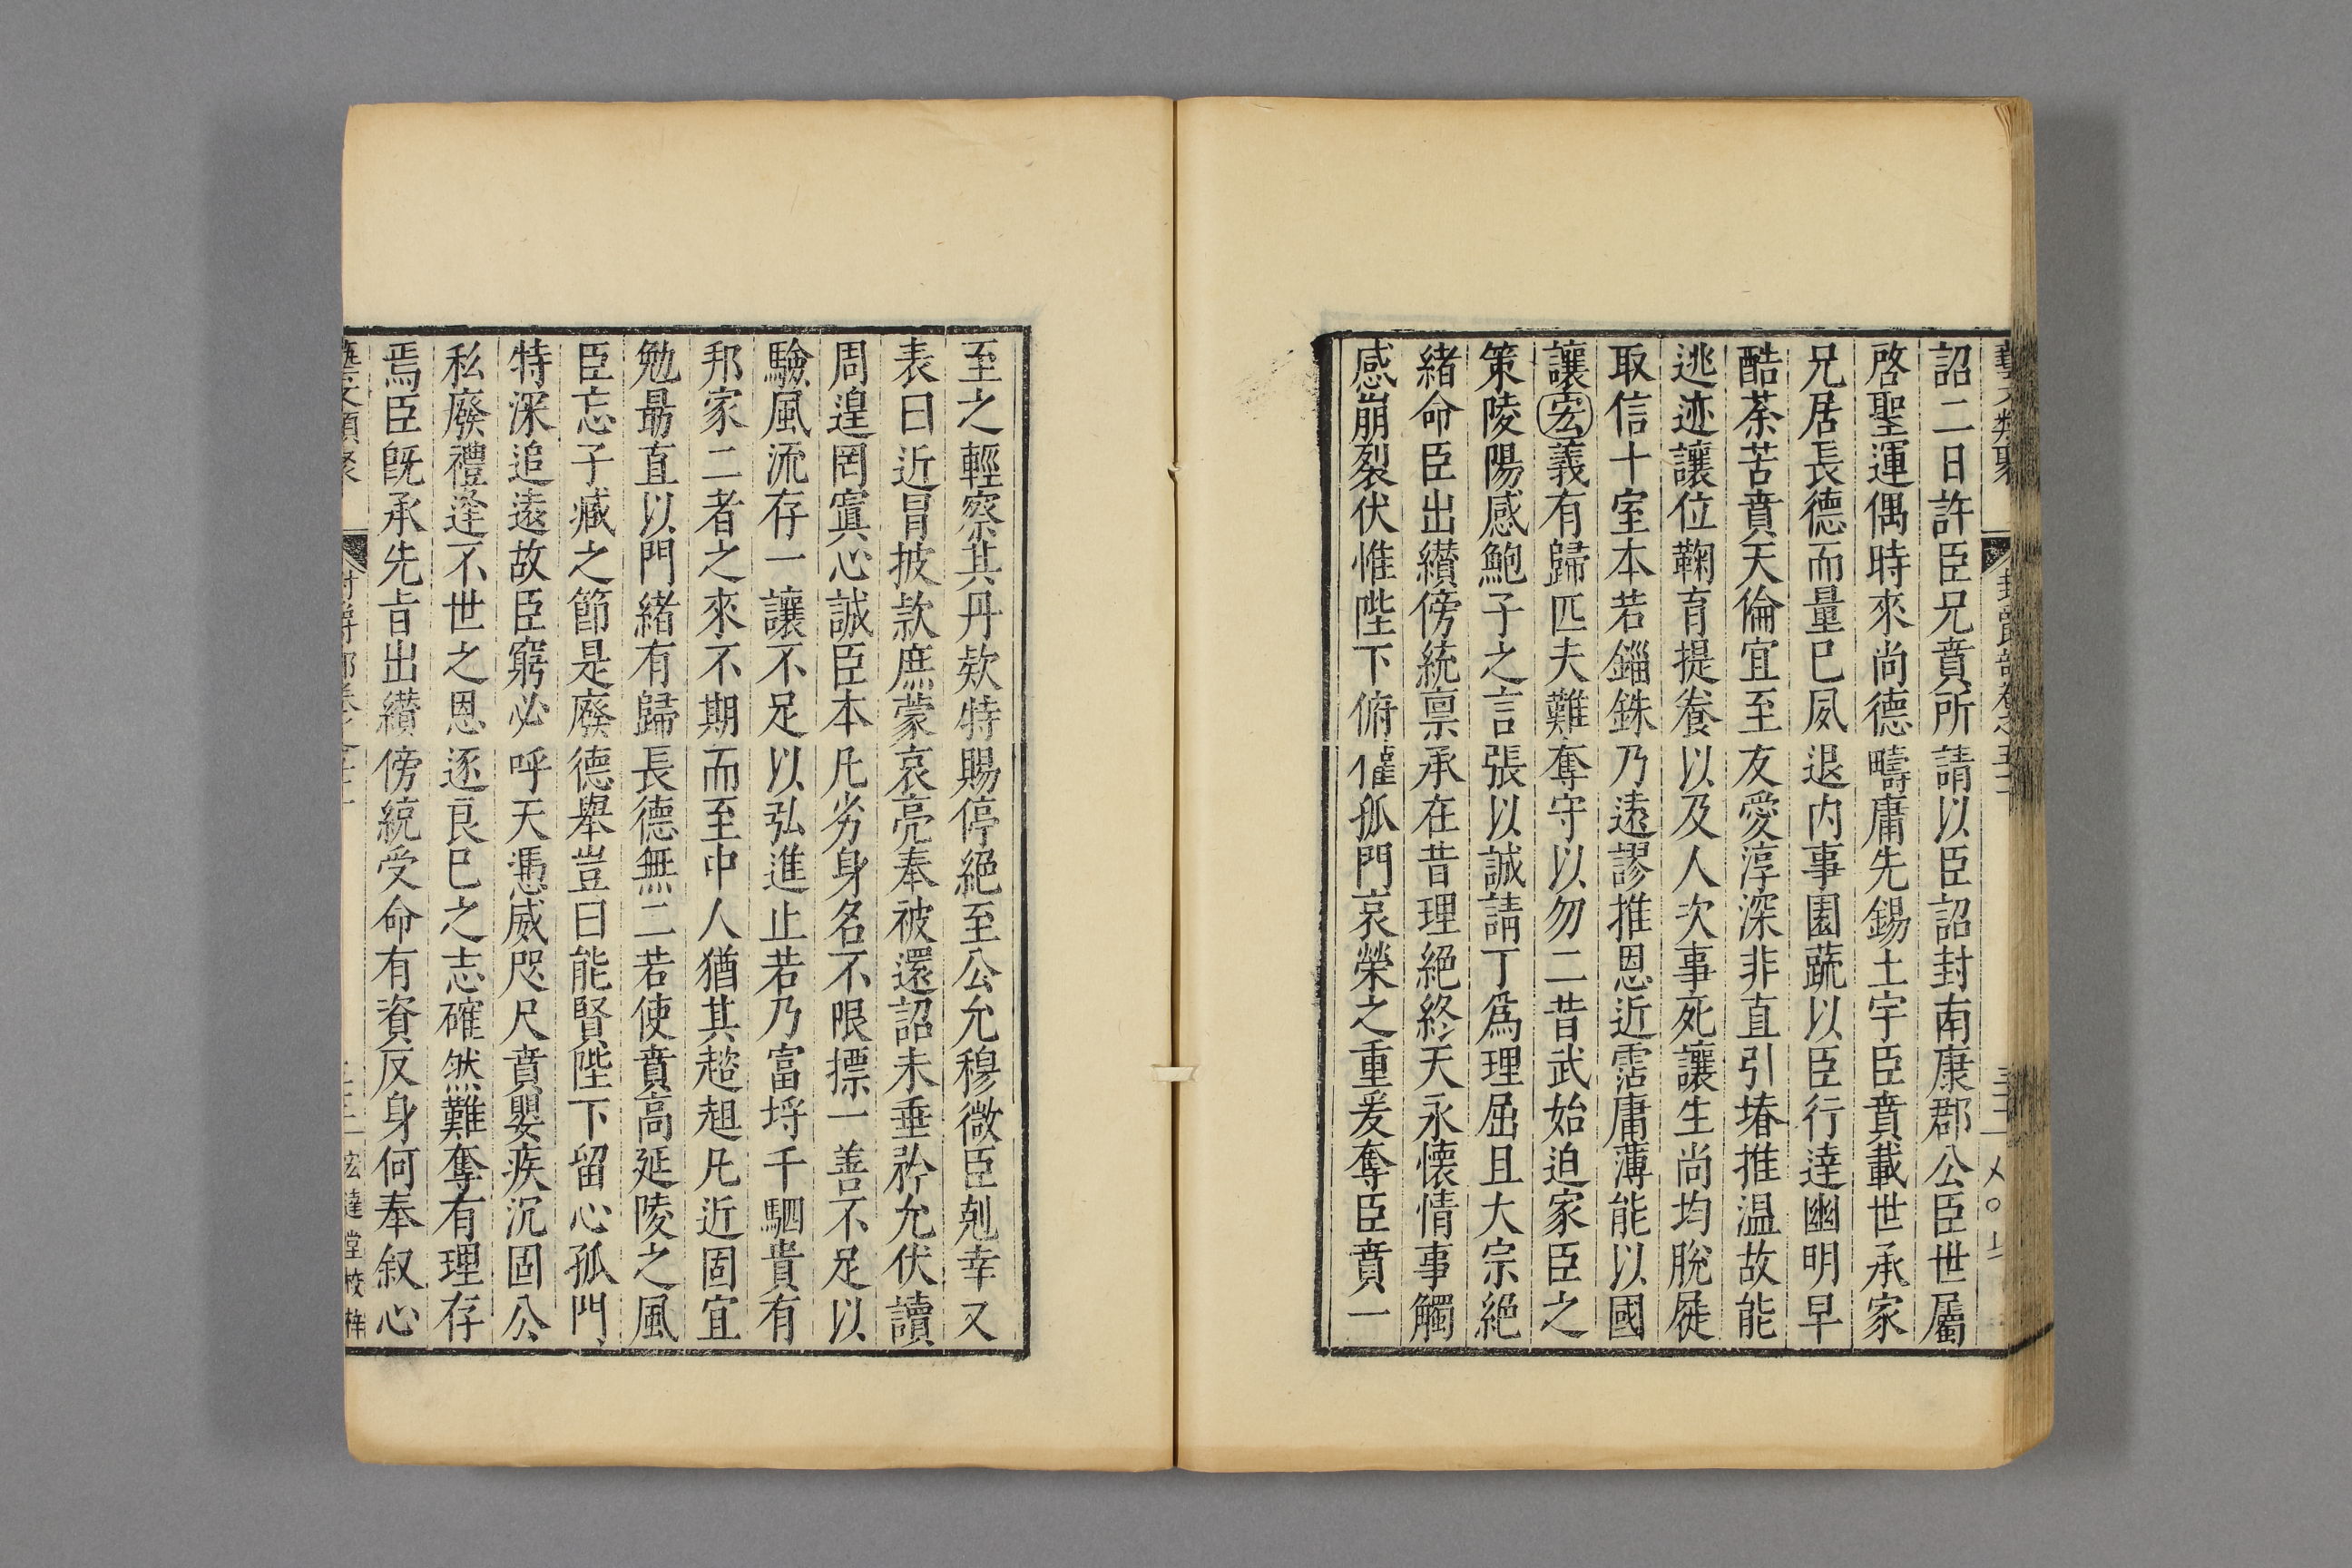 詔二日許臣兄賁所請以臣詔封南康郡公臣世屬
啓聖運偶時來尚德疇庸先錫土宇臣賁載世承家
兄居長德而量已夙退内事園蔬以臣行達幽明早
酷荼苦賁天倫宜至友愛淳深非直引椿推温故能
逃迹讓位鞠育提養以及人次事死讓生尚均脫屣
取信十室本若錙銖乃遠謬推恩近霑庸薄能以國
讓宏義有歸匹夫難奪守以勿二昔武始迫家臣之
策陵陽感鮑子之言張以誠請丁爲理屈且大宗絕
緒命臣出纉傍統禀承在昔理絕終天永懷情事觸
感崩裂伏惟陛下俯㒁孤門哀榮之重爰奪臣賁一
至之輕察其丹欵特賜停絕至公允穆微臣剋幸又
表曰近冒披款庶蒙哀亮奉被還詔未垂矜允伏讀
周遑罔寘心誠臣本凡劣身名不限摽一善不足以
驗風流存一讓不足以弘進止若乃富埒千駟貴有
邦家二者之來不期而至中人猶其趦趄凡近固宜
勉勗直以門緒有歸長德無二若使賁高延陵之風
臣忘子臧之節是廢德舉豈曰能賢陛下留心孤門
特深追遠故臣窮必呼天憑威咫尺賁嬰疾沉固公
私廢禮逢不世之恩逐良已之志確然難奪有理存
焉臣旣承先㫖出纉傍統受命有資反身何奉叙心